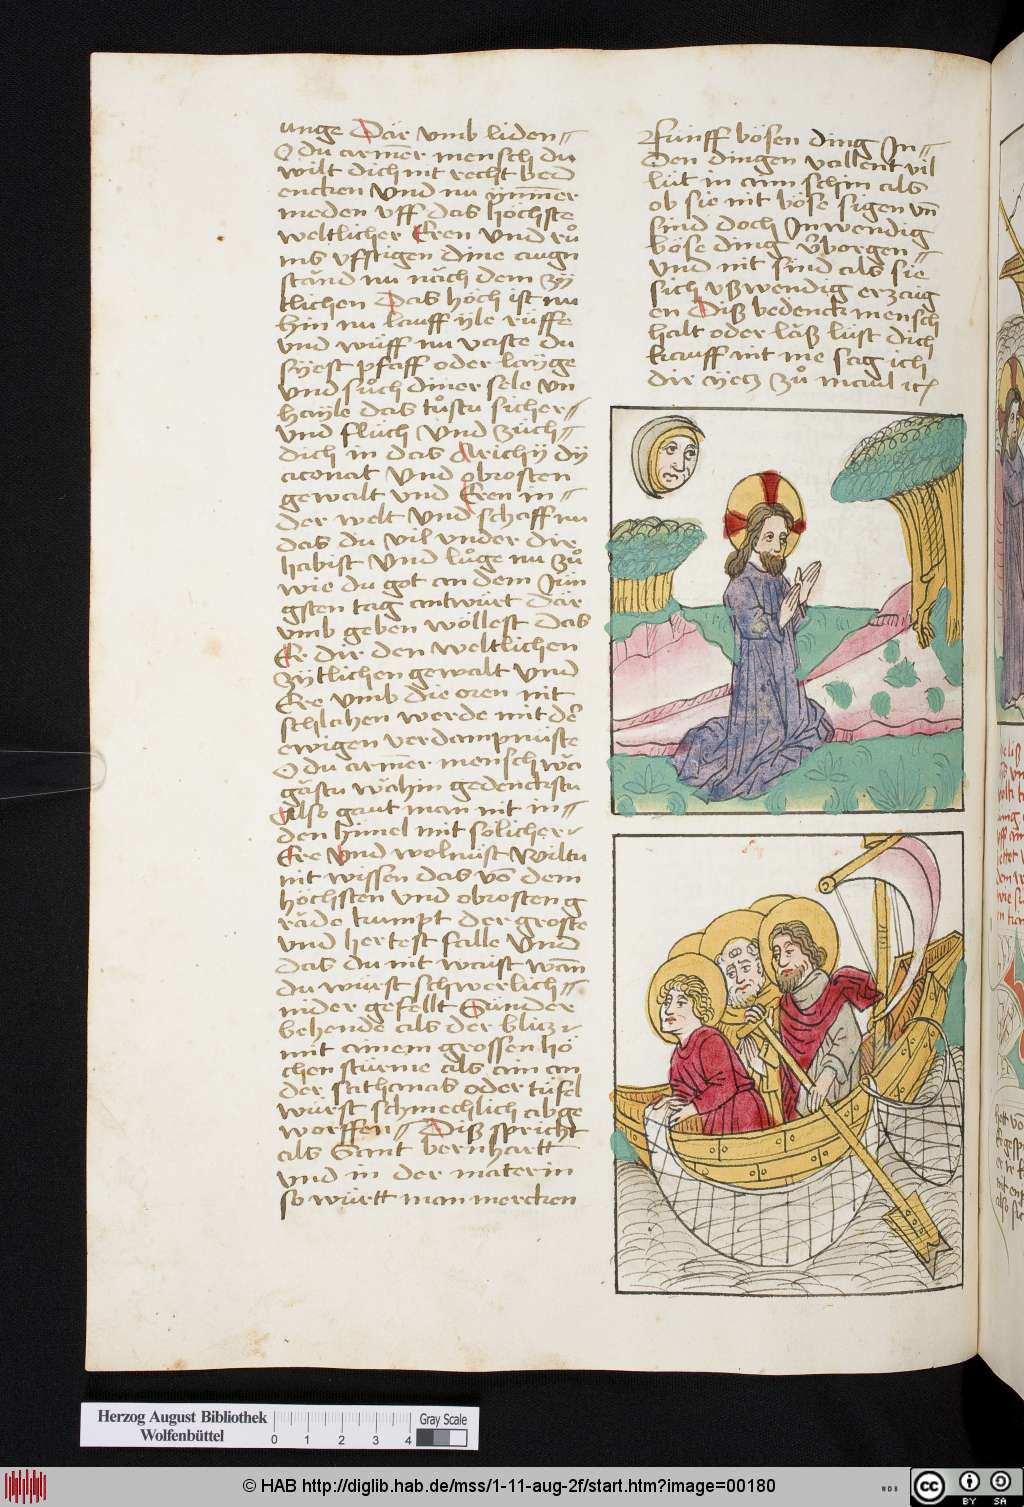 unge Där vmb liden
O du armer mensch du
wilt dich nit recht bed
encken vnd nu ÿm̄er
meden vff das höchste
weltlicher Eren vnd rů
ms vffstigen dine augn
stånd nu nåch dem zÿ
tlichen Das höch ist nu
hin nu lauff ÿle rüffe
vnd wüff nu vaste du
sÿest pfaff oder laÿge
vnd sůch diner sele vn
haÿle das tůstu sicher
vnd flüch vnd züch
dich in das Archÿ dÿ
aconat vnd obrosten
gewalt vnd Eren in
der welt vnd schaff nu
das du vil vnder dir
habist vnd lůge nu zů
wie du got an dem Jün
gsten tag antwürt där
vmb geben wöllest das
Er dir den weltlichen
zÿtlichen gewalt vnd
Ere vmb die oren nit
schlahen werde mit dē
ewigen verdampnüste
O du armer mensch wå
gåstu wåhin gedenckstu
Also gaut man nit in
den himel mit solicher
Ere vnd wolnust Wiltu
nit wissen das vō dem
höchsten vnd obrosten g
råde kumpt der groste
vnd hertest falle vnd
das du nit waist wan̄
du wurst schwerlich
nider gefellt Sünder
behende als der bliz
mit ainem grossen hö
chen stürme als ain an
der sathanas oder tüfel
würst schmechlich abge
worffen Diß spricht
als Sant bernhartt
vnd in der materin
so württ man mercken
Fünff bösen ding In
den dingen vallent vil
lüt in aim schin als
ob sie nit böse sigen vn̄
sind doch Inwendig
böse ding v̄borgen
vnd nit sind als sie
sich vßwendig erzaig
en Diß bedenck mensch
halt oder låß lüst dich
kauff nit me sag ich
dir ÿecz zů maul ꝛc
Herzog August Bibliothek
Wolfenbüttel
0 1 2 3 4
Gray Scale
© HAB http://diglib.hab.de/mss/1-11-aug-2f/start.htm?image=00180
WDB
cc
BY SA